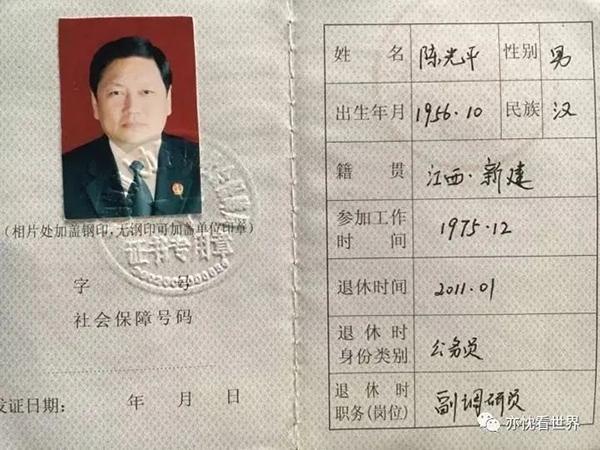 (相片处加盖钢印,无钢印可加盖单位印章)
证书专用章
字 号
社会保障号码
发证日期: 年 月 日
姓 名 陈光平 性别 男
出生年月 1956.10 民族 汉
籍 贯 江西·新建
参加工作
时 间
1975.12
退休时间 2011.01
退 休 时
身份类别
公务员
退 休 时
职务(岗位)
副调研员
亦忱看世界